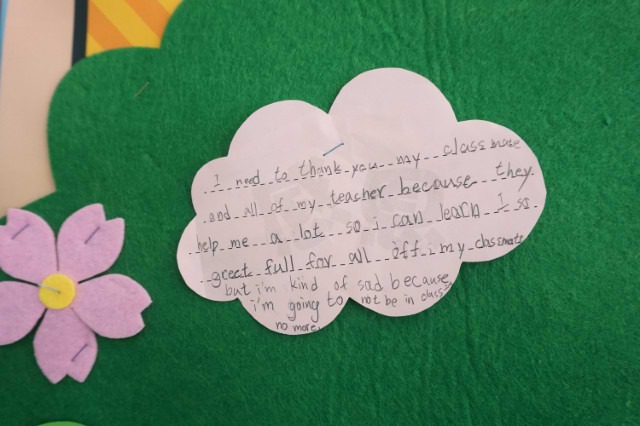 I need to thank you my classmate
and all of my teacher because they
help me a lot so i can learn I so
greet full for all off my classmate
but i'm kind of sad because
i'm going to not be in class
no more.